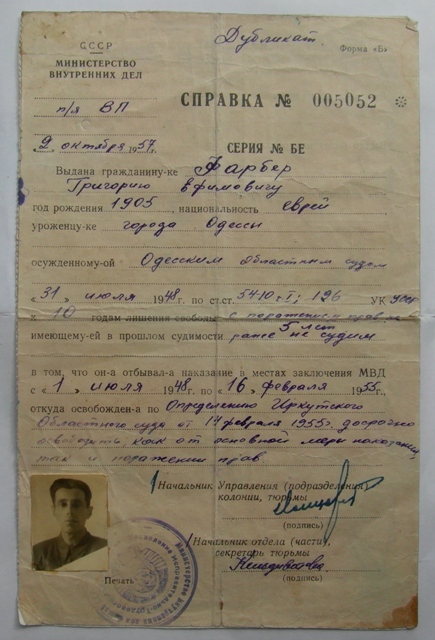 Дубликат
СССР
Форма «Б»
МИНИСТЕРСТВО
ВНУТРЕННИХ ДЕЛ
п/я ВП
СПРАВКА № 005052
9 октября 1957г.
СЕРИЯ № БЕ
Выдана гражданину-ке Фарбер
Григорию Ефимовичу
год рождения 1905, национальность еврей
уроженцу-ке города Одессы
осужденному-ой Одесским Областным судом
«31» июля 1948г. по ст.ст. 5410 г.I; 196 УК УССР
к 10 годам лишения свободы с поражением прав на 5 лет
имеющему-ей в прошлом судимости ранее не судим
в том, что он-а отбывал-а наказание в местах заключения МВД
с «1» июля 1948г. по «16» февраля 1955г.,
откуда освобожден-а по Определению Иркутского
Областного суда от 14 февраля 1955г. досрочно
освободить как от основной меры наказания,
так и поражении прав.
Начальник Управления (подразделения)
колонии, тюрьмы
(подпись)
Начальник отдела (части).
секретарь тюрьмы
(подпись)
Печать